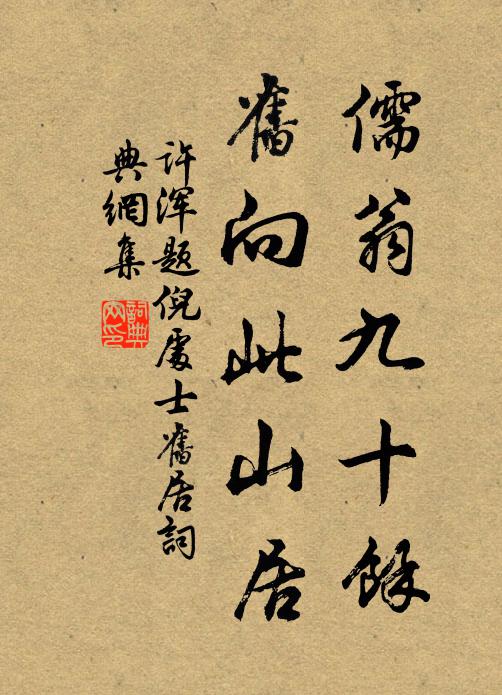 儒翁九十餘
舊向此山居
許渾題倪處士舊居詞
典網集
詞典
网印